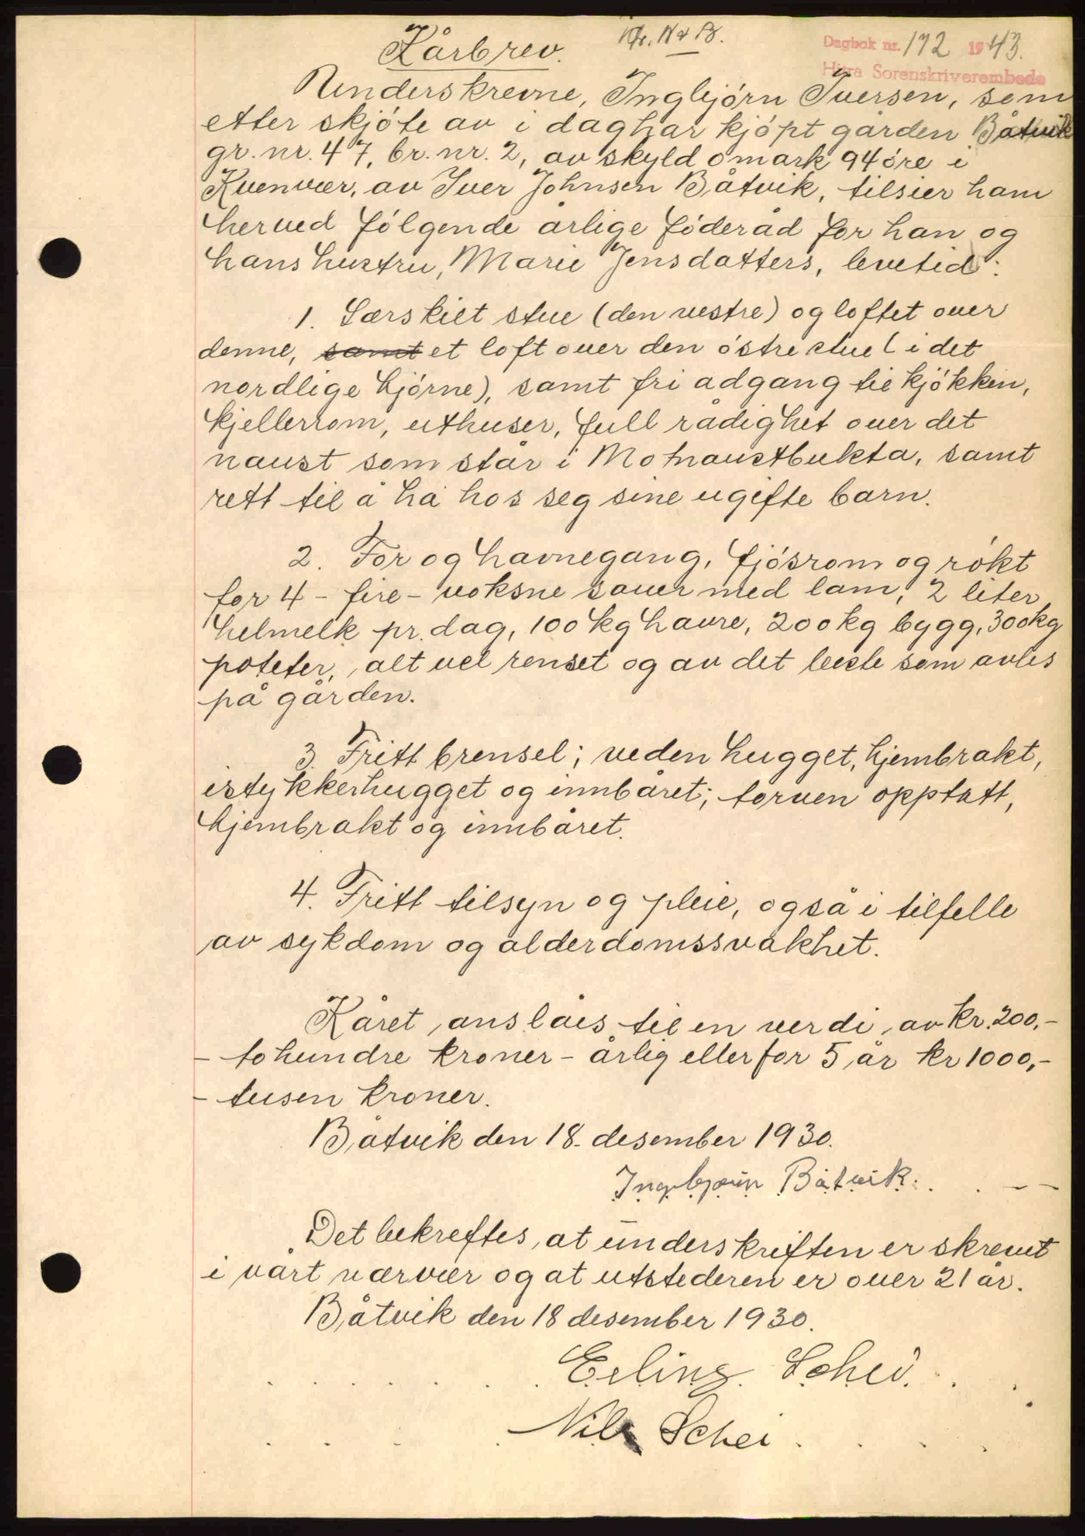 Kårbrev.
Dagbok nr. 172 1943.
Hitra Sorenskriverembede
Underskrevne, Ingbjörn Iversen, som
etter skjöte av i dag har kjöpt gården Båtvik
gr. nr. 47, br. nr. 2, av skyld 0 mark 94 öre i
Kvenvær, av Iver Johnsen Båtvik, tilsier ham
herved fölgende årlige föderåd for han og
hans hustru, Marie Jensdatters, levetid:
1. Særskilt stue (den vestre) og loftet over
denne, samt et loft over den östre stue (i det
nordlige hjörne), samt fri adgang til kjökken,
kjellerrom, uthuser, full rådighet over det
naust som står i Motnaustbukta, samt
rett til å ha hos seg sine ugifte barn.
2. For og havnegang, fjösrom og rökt
for 4 - fire - voksne sauer med lam, 2 liter
helmelk pr. dag, 100 kg havre, 200 kg bygg, 300 kg
poteter, alt vel renset og av det beste som avles
på gården.
3. Fritt brensel; veden hugget, hjembrakt,
istykkerhugget og innbåret; torven opptatt,
hjembrakt og innbåret.
4. Fritt tilsyn og pleie, også i tilfelle
av sykdom og alderdomssvakhet.
Kåret anslåes til en verdi av kr. 200,-
- tohundre kroner - årlig eller for 5 år kr 1000,-
- tusen kroner.
Båtvik den 18. desember 1930.
Ingebjörn Båtvik.
Det bekreftes, at underskriften er skrevet
i vårt nærvær og at utstederen er over 21 år.
Båtvik den 18 desember 1930.
Erling Schei.
Nils Schei